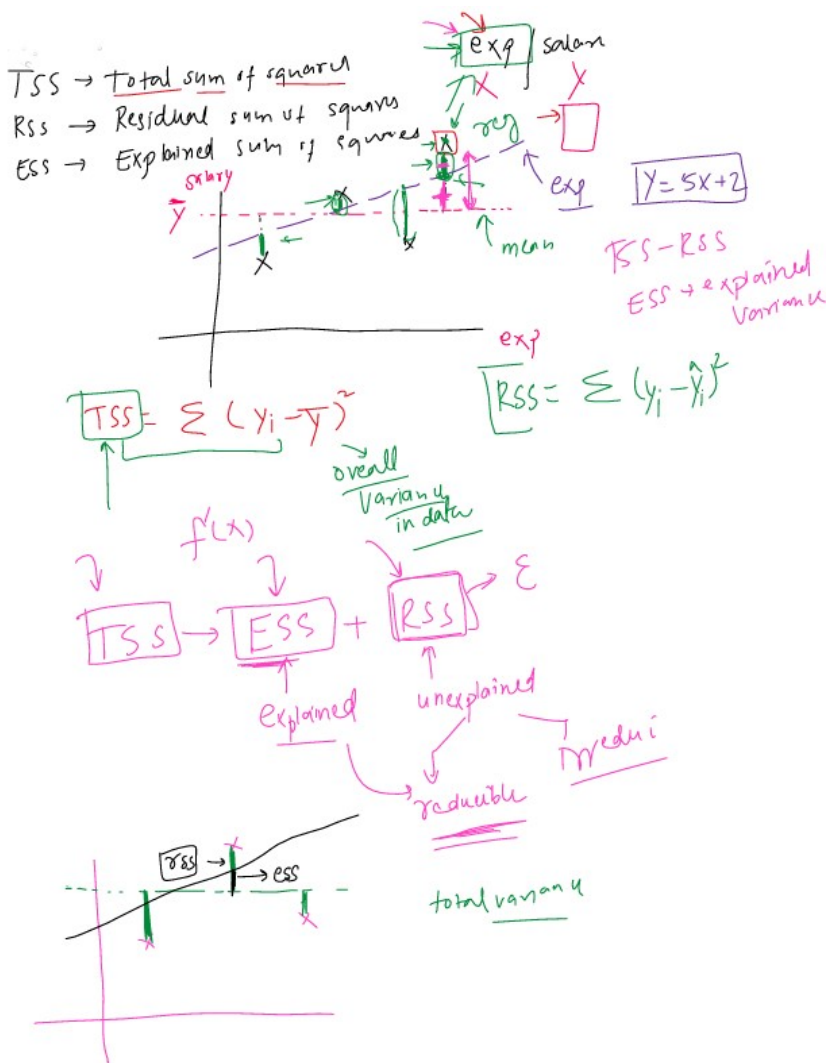 exp | salary
X Y
TSS → Total sum of squares
RSS → Residual sum of squares
ESS → Explained sum of squares
reg
salary
ȳ
exp
Y = 5X+2
mean
TSS - RSS
ESS → explained
Variance
exp
TSS = Σ (yi - ȳ)²
RSS = Σ (yi - ŷi)²
overall
Variance
in data
f'(x)
TSS → ESS + RSS → ε
explained
unexplained
reducible
rss → ess
total variance